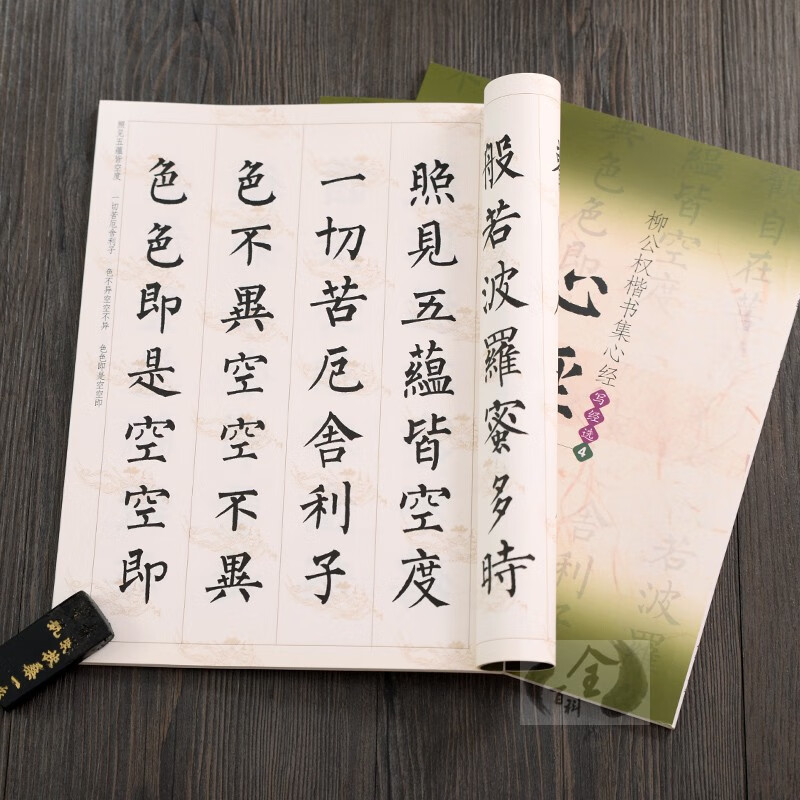 般若波羅蜜多時
照見五蘊皆空度
一切苦厄舍利子
色不異空空不異
色色即是空空即
照见五蕴皆空度 一切苦厄舍利子 色不异空空不异 色色即是空空即
柳公权楷书集心经
写经选4
心经
自在菩
蘊皆空度
異色色即
舍利子
若波羅
全
百科